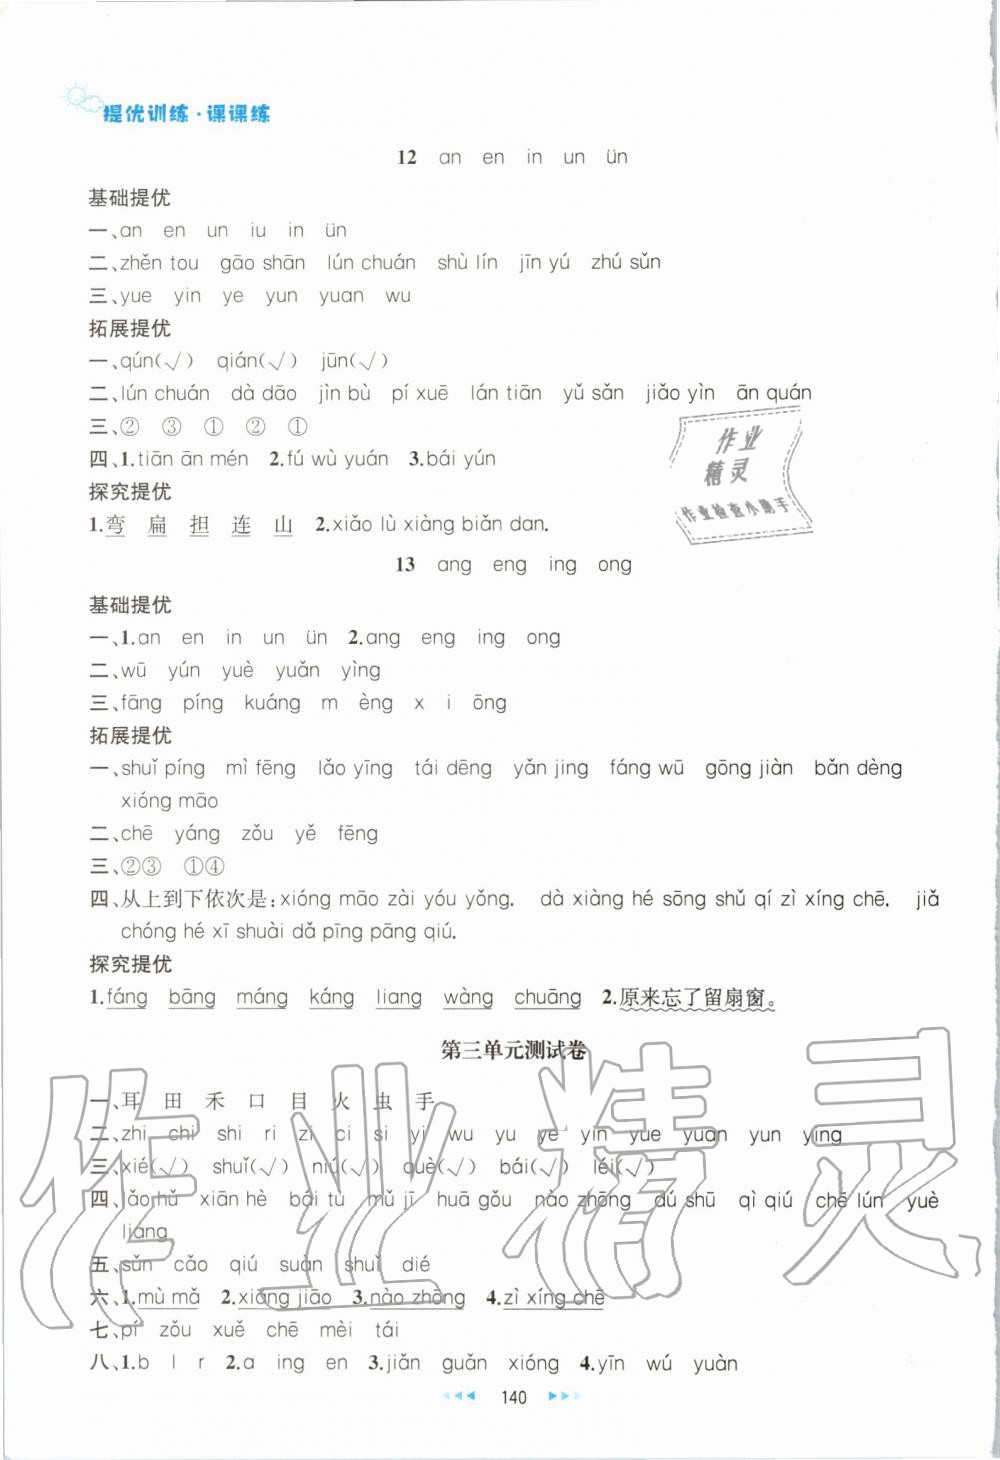 提优训练·课课练
12 an en in un ün
基础提优
一、an en un iu in ün
二、zhěn tou gāo shān lún chuán shù lín jīn yú zhú sǔn
三、yue yin ye yun yuan wu
拓展提优
一、qún(√) qián(√) jūn(√)
二、lún chuán dà dāo jìn bù pí xuē lán tiān yǔ sǎn jiǎo yìn ān quán
三、② ③ ① ② ①
四、1.tiān ān mén 2.fú wù yuán 3.bái yún
探究提优
1.弯 扁 担 连 山 2.xiǎo lù xiàng biǎn dan.
作业
精灵
作业检查小助手
13 ang eng ing ong
基础提优
一、1.an en in un ün 2.ang eng ing ong
二、wū yún yuè yuǎn yìng
三、fāng píng kuáng m èng x i ōng
拓展提优
一、shuǐ píng mì fēng lǎo yīng tái dēng yǎn jing fáng wū gōng jiàn bǎn dèng
xióng māo
二、chē yáng zǒu yě fēng
三、②③ ①④
四、从上到下依次是:xióng māo zài yóu yǒng. dà xiàng hé sōng shǔ qí zì xíng chē. jiǎ
chóng hé xī shuài dǎ pīng pāng qiú.
探究提优
1.fáng bāng máng káng liang wàng chuāng 2.原来忘了留扇窗。
第三单元测试卷
一、耳 田 禾 口 目 火 虫 手
二、zhi chi shi ri zi ci si yi wu yu ye yin yue yuan yun ying
三、xié(√) shuǐ(√) niú(√) què(√) bái(√) léi(√)
四、lǎo hǔ xiān hè bái tù mǔ jī huā gǒu nào zhōng dú shū qì qiú chē lún yuè
liang
五、sǔn cǎo qiú suàn shuǐ dié
六、1.mù mǎ 2.xiāng jiāo 3.nào zhōng 4.zì xíng chē
七、pí zǒu xuě chē mèi tái
八、1.b l r 2.a ing en 3.jiǎn guǎn xióng 4.yīn wú yuàn
140
作业精灵